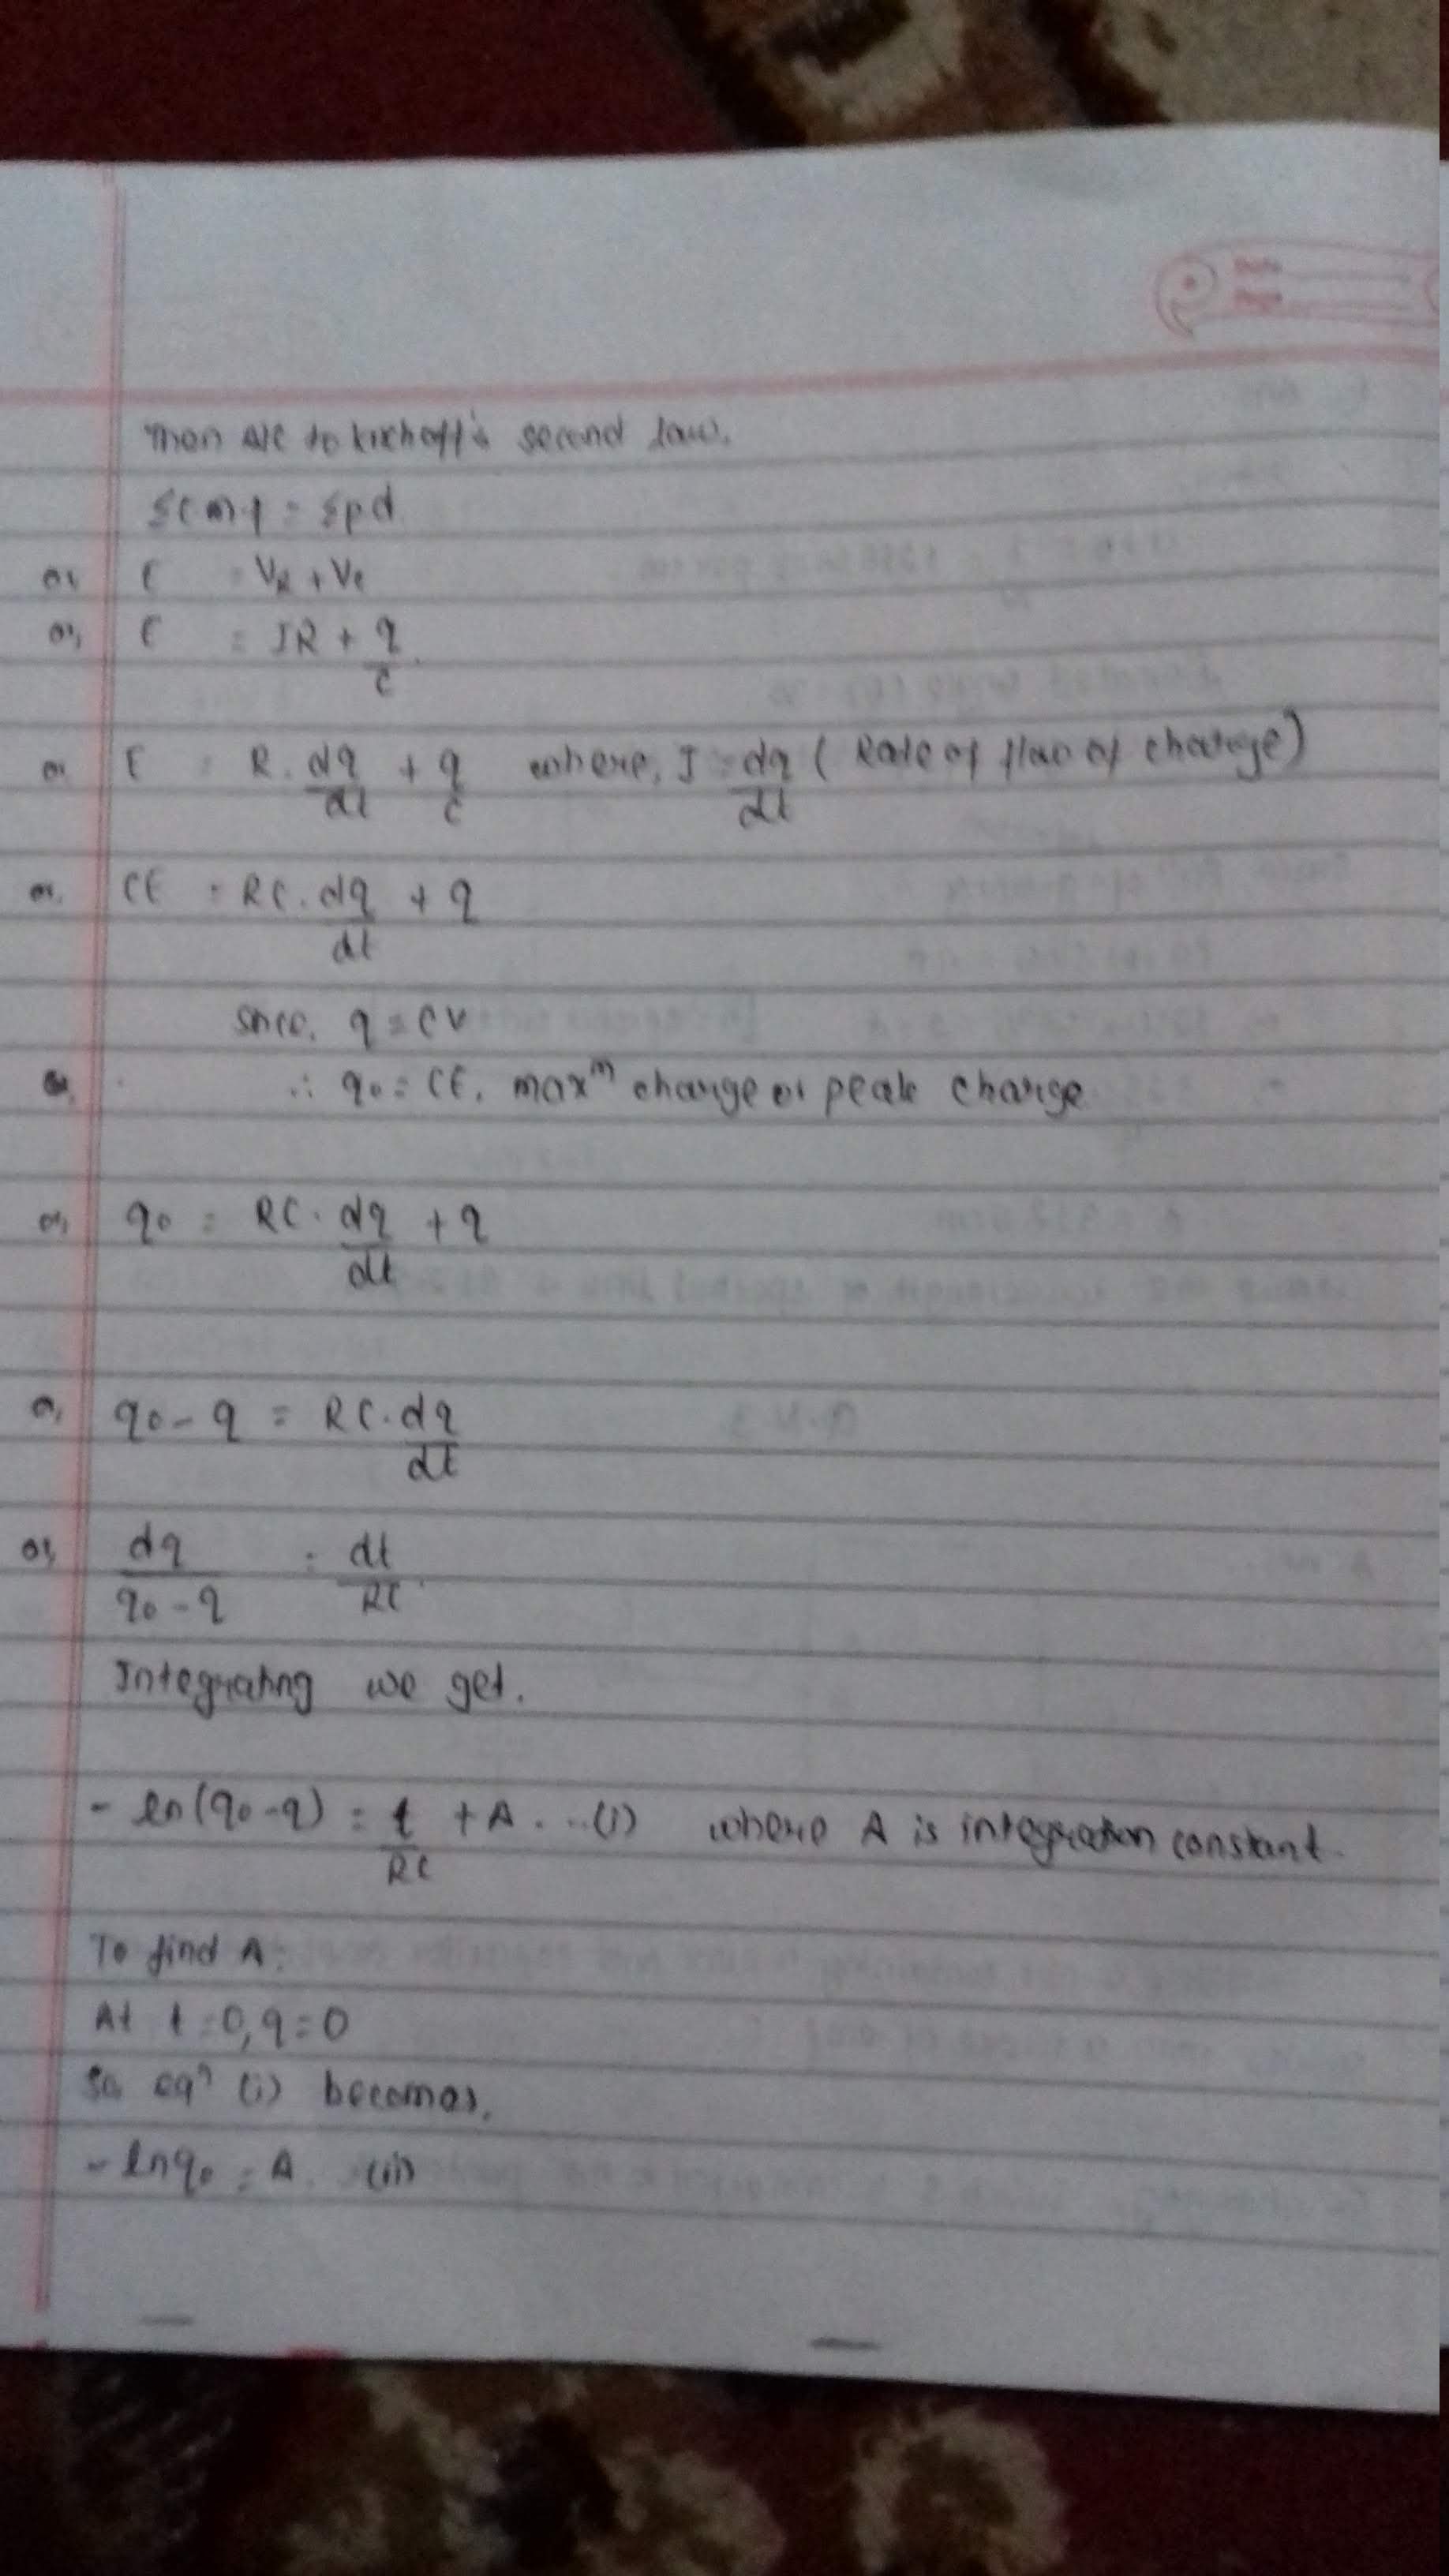 Then a/c to kirchoff's second law.
Σemf = Σpd
or, E = VR + Vc
or, E = IR + q/c
or, E = R. dq/dt + q/c where, I = dq/dt ( Rate of flow of charge)
or, CE = RC. dq/dt + q
since, q = CV
∴ q0 = CE, maxm charge or peak charge
or, q0 = RC. dq/dt + q
or, q0 - q = RC. dq/dt
or, dq/q0 - q = dt/RC.
Integrating we get.
- ln(q0 - q) = t/RC + A. ..(i) where A is integration constant.
To find A:
At t = 0, q = 0
So eqn (i) becomes,
- lnq0 = A. (ii)